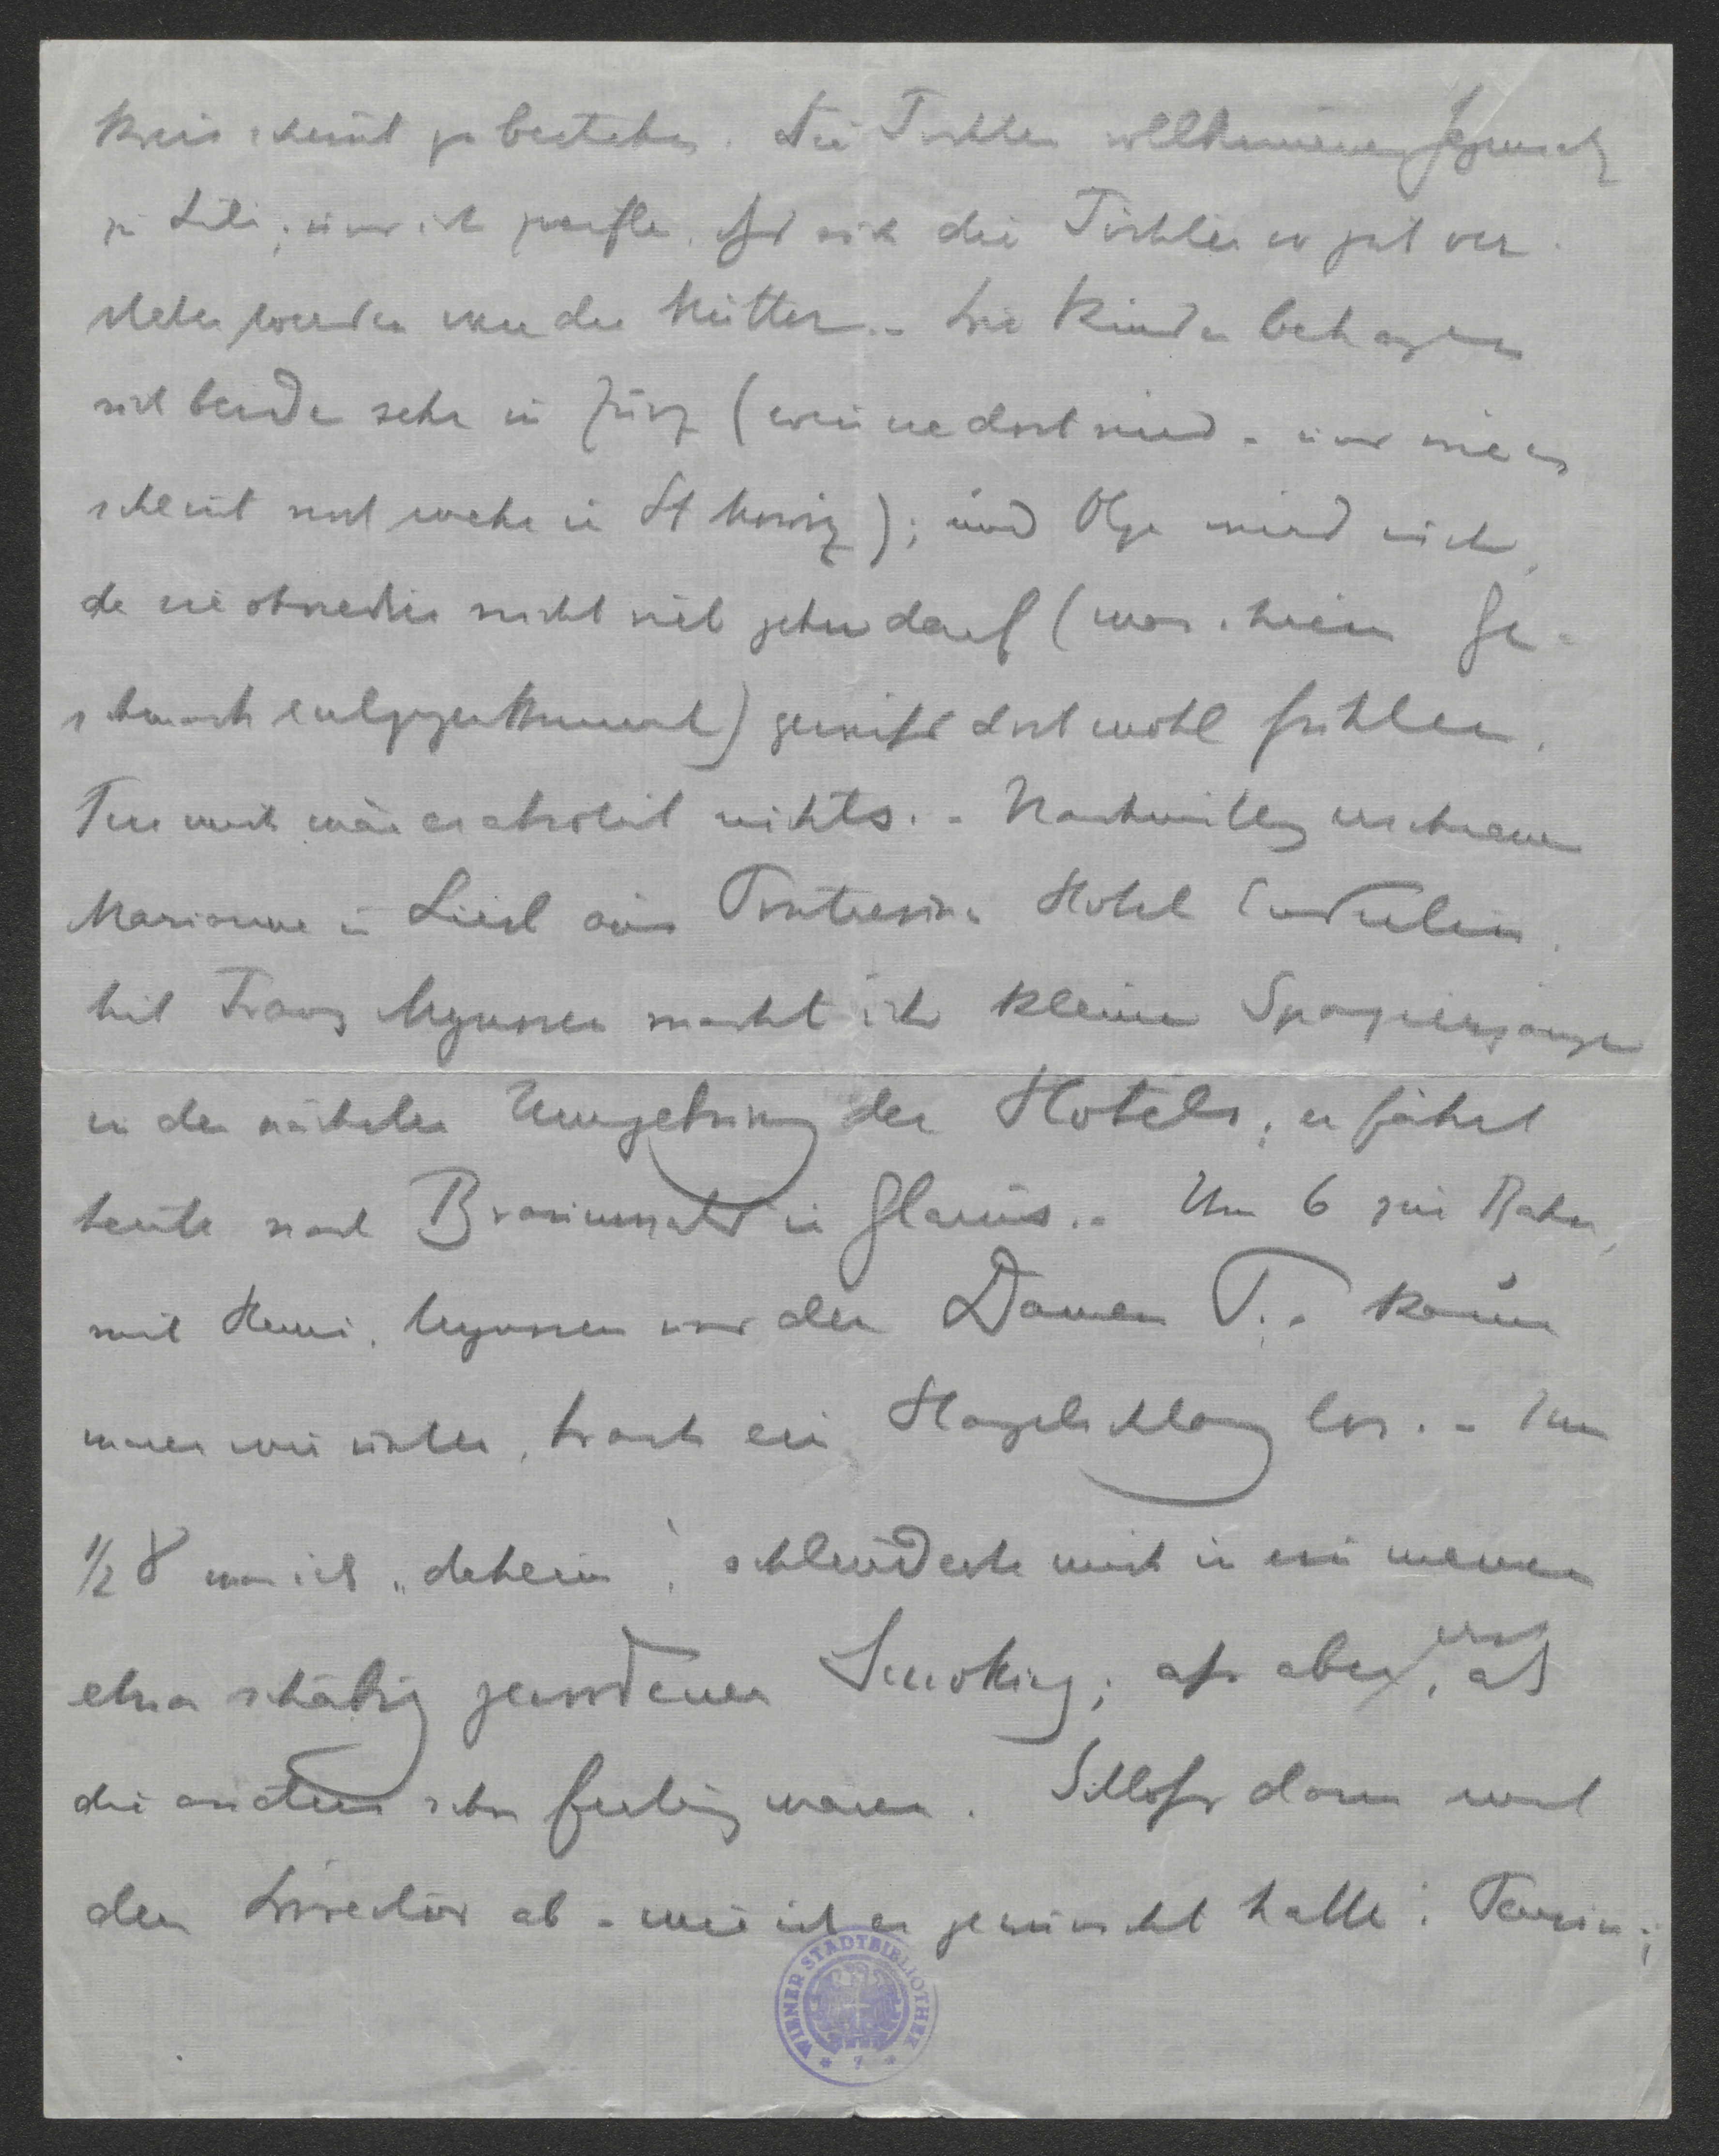 Kreis scheint zu bestehen. Die Tochter vollkommener Gegensatz
zu Lili; und ich zweifle, dſs sich die Töchter so gut ver-
stehen werden wie die Mütter.– Die Kinder behagen
sich beide sehr in Zuoz (wenn sie dort sind – und wie es
scheint noch mehr in St Moriz); und Olga wird sich,
da sie ohnedies nicht viel gehen darf (was ihrem Ge-
schmack entgegenkommt) gewiſs dort wohl fühlen.
Für mich wär es absolut nichts.– Nachmittag erschienen
Marianne u Liesl aus Pontresina Hotel
Mit Franz Mycusen macht ich kleine Spaziergänge
in der nächsten Umgebung des Hotels; er fährt
heute nach Braunwald in Glarus.– Um 6 zur Bahn,
mit Heini, und den Damen T.– Kaum
waren wir unten, brach ein Hagelschlag los.– Um
½ 8 war ich „daheim“, schleuderte mich in meinen
etwas schäbig gewordenen Smoking; aſs aber, erst als
die andern schon fertig waren. Schloſs dann mit
dem Director ab – wie ich es gewünscht hatte;
WIENER STADTBIBLIOTHEK
* 7 *